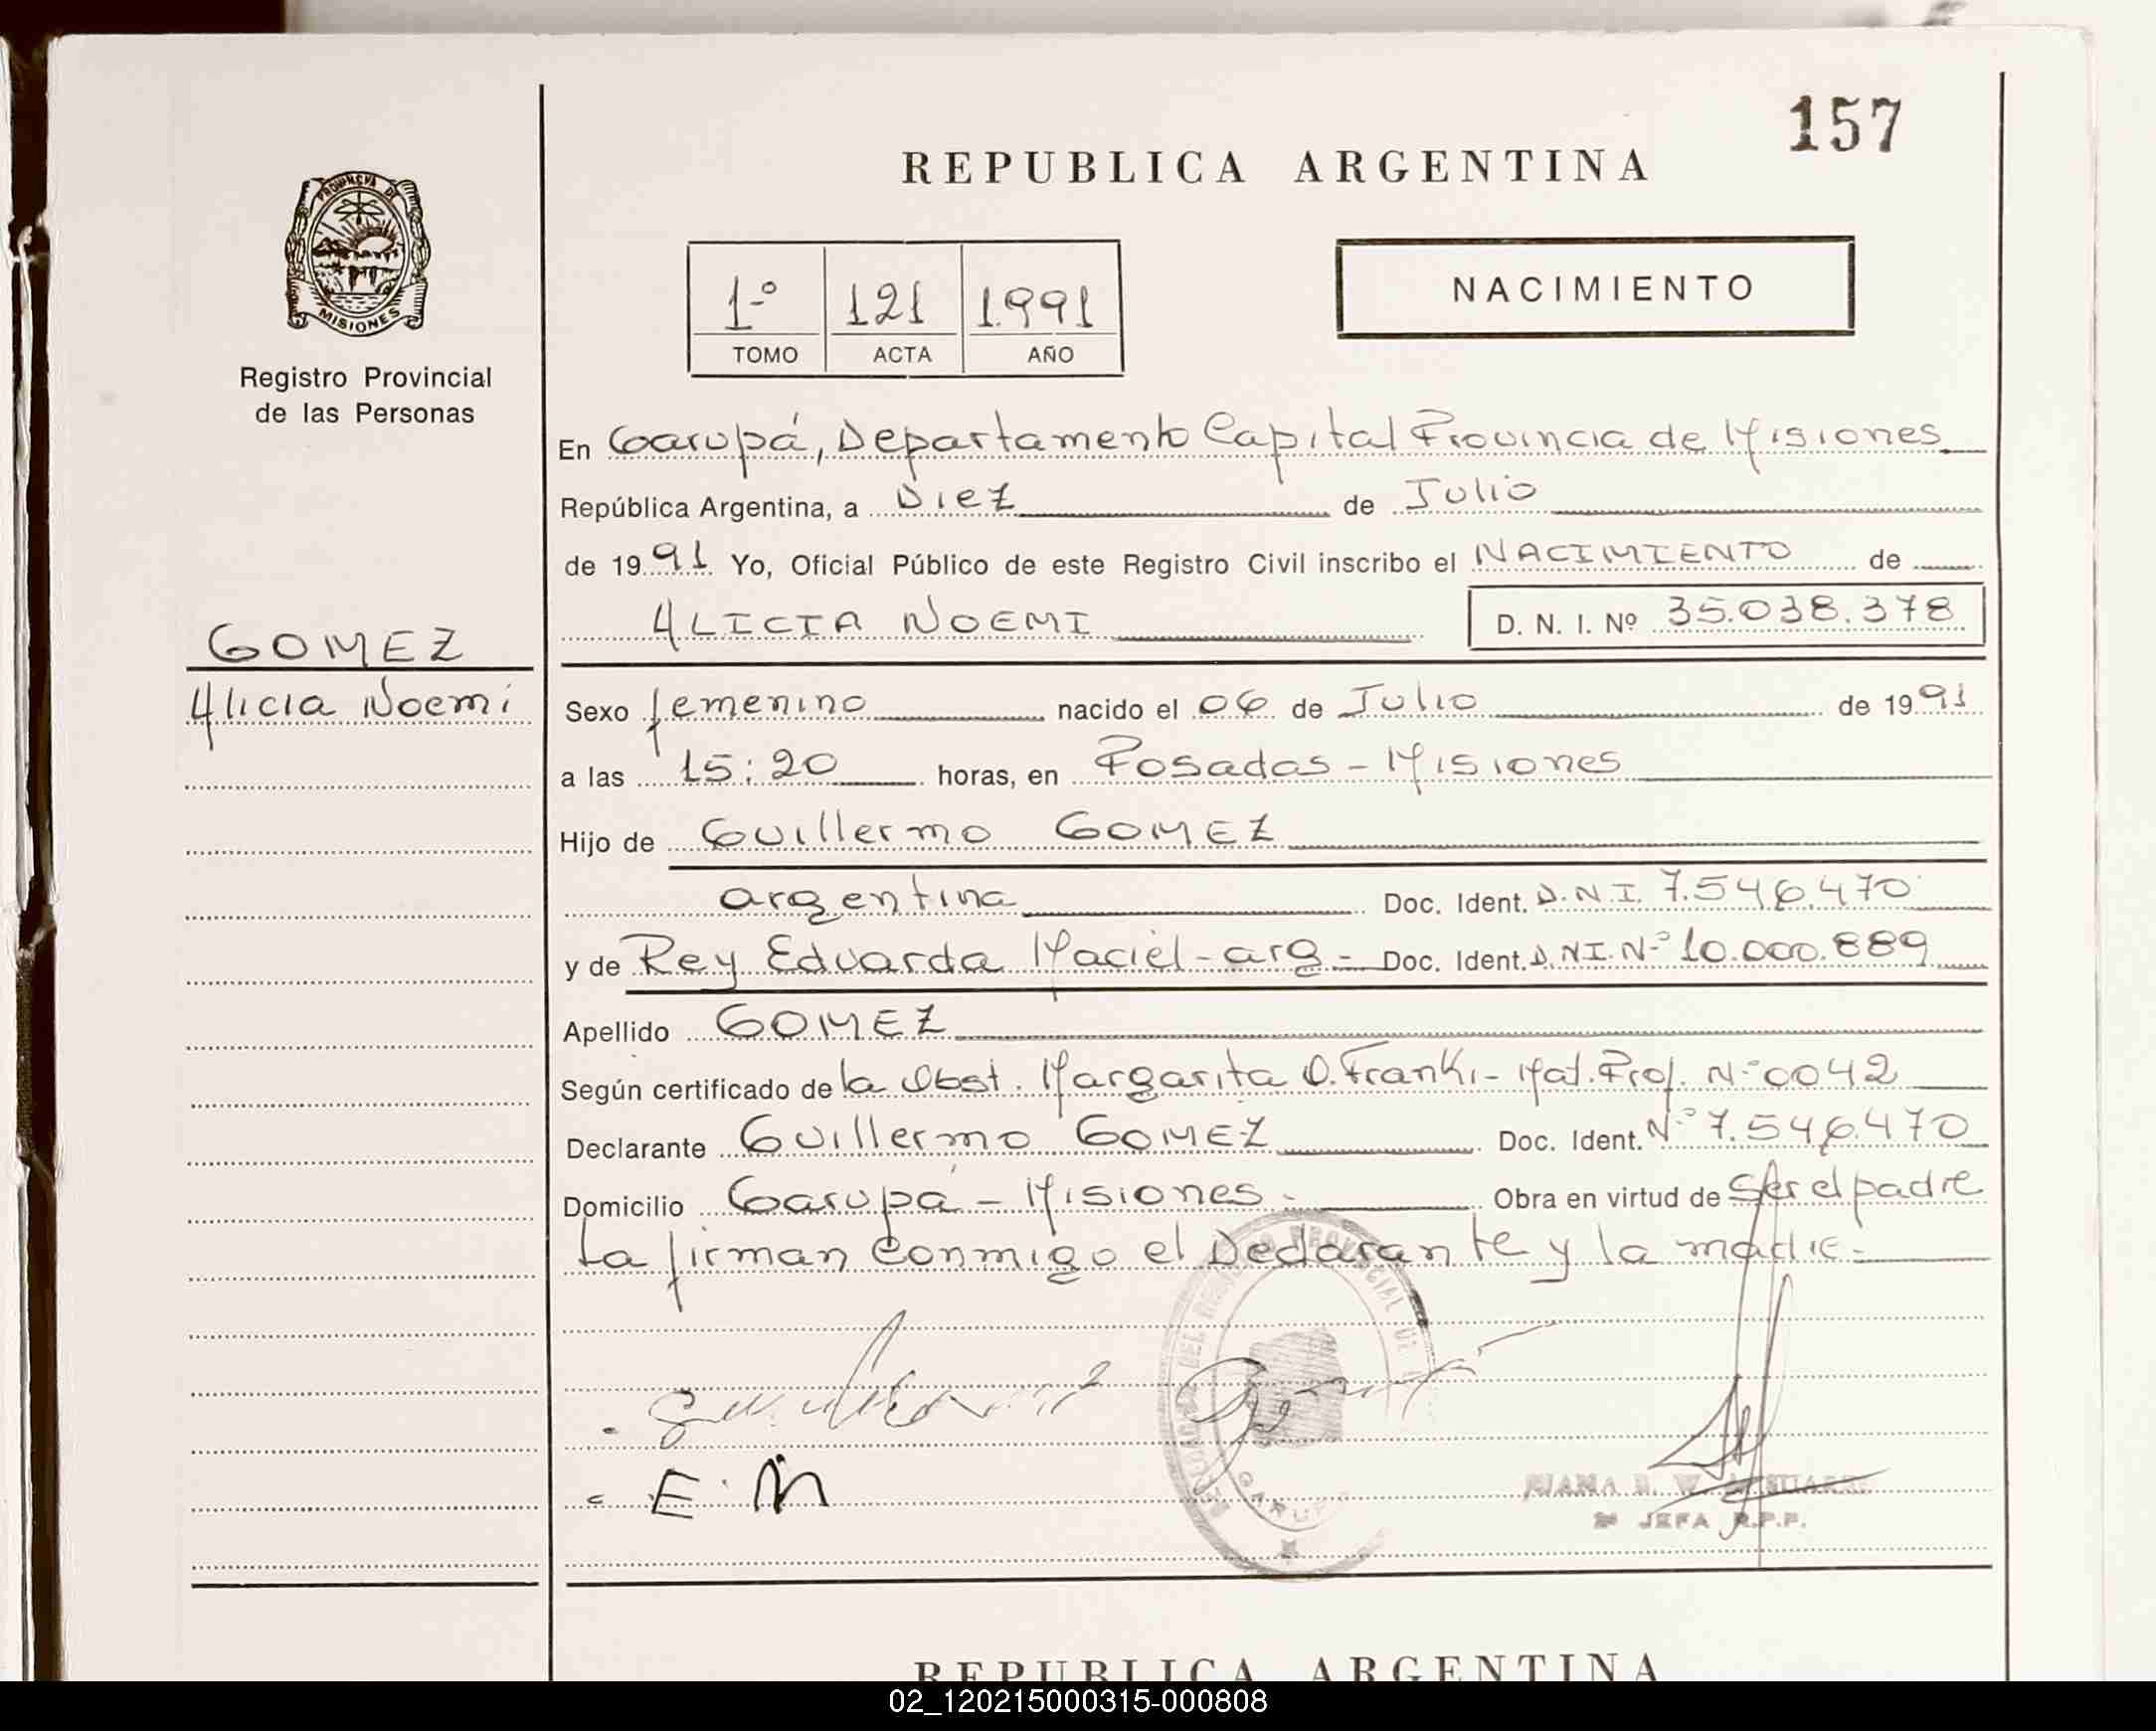 157
REPUBLICA ARGENTINA
PROVINCIA DE
MISIONES
Registro Provincial
de las Personas
1º 121 1.991
TOMO ACTA AÑO
NACIMIENTO
En Garupá, Departamento Capital Provincia de Misiones
República Argentina, a Diez de Julio
de 1991 Yo, Oficial Público de este Registro Civil inscribo el NACIMIENTO de
ALICIA NOEMI D. N. I. Nº 35.038.378
GOMEZ
Alicia Noemi
Sexo femenino nacido el 06 de Julio de 1991
a las 15:20 horas, en Posadas - Misiones
Hijo de Guillermo GOMEZ
argentina Doc. Ident. D.N.I. 7.546.470
y de Rey Eduarda Maciel - arg - Doc. Ident. D.NI.Nº 10.000.889
Apellido GOMEZ
Según certificado de la Obst. Margarita O. Franki - Mat. Prof. Nº 0042
Declarante Guillermo GOMEZ Doc. Ident. Nº 7.546.470
Domicilio Garupá - Misiones - Obra en virtud de Ser el padre
La firman conmigo el Declarante y la madre -
E. M
JEFA R.P.P.
REPUBLICA ARGENTINA
02_120215000315-000808